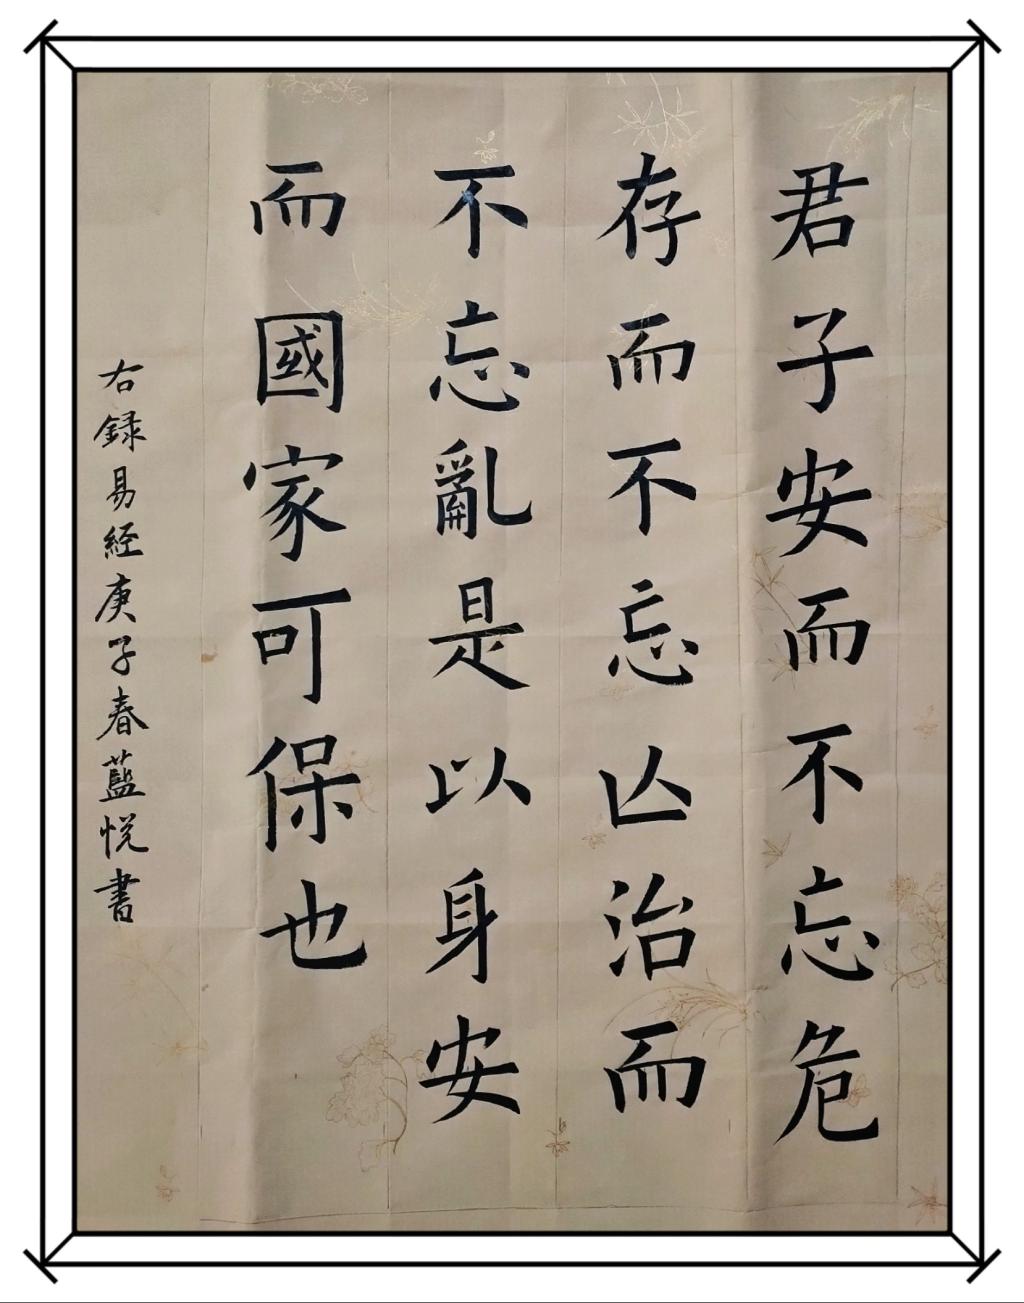 君子安而不忘危
存而不忘亾治而
不忘亂是以身安
而國家可保也
右録易経庚子春藍悦書